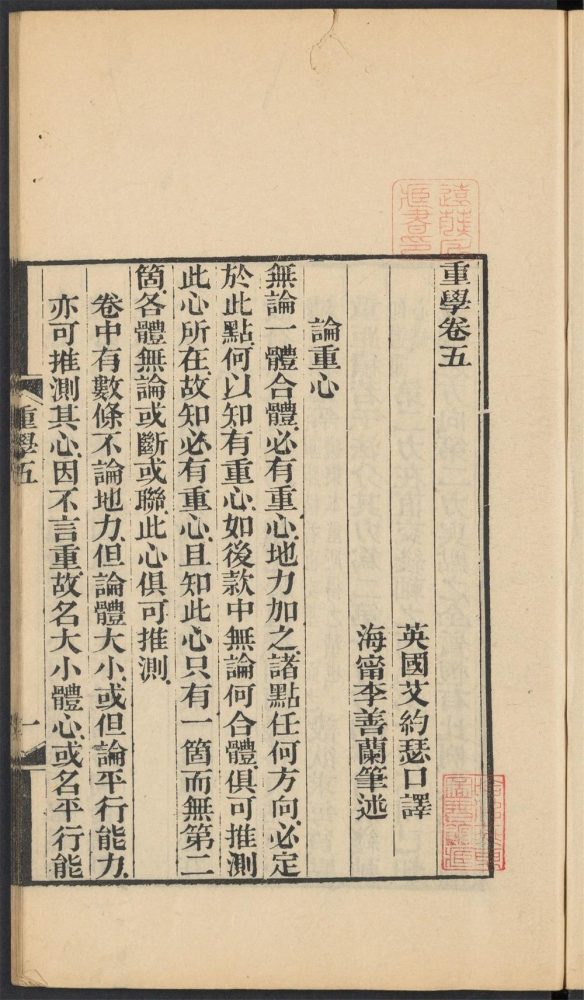 重學卷五
英國艾約瑟口譯
海甯李善蘭筆述
論重心
無論一體合體、必有重心、地力加之、諸點任何方向、必定
於此點、何以知有重心、如後款中無論何合體、俱可推測
此心所在、故知必有重心、且知此心只有一箇而無第二
箇、各體無論或斷或聯、此心俱可推測、
卷中有數條不論地力、但論體大小、或但論平行能力、
亦可推測其心、因不言重、故名大小體心、或名平行能
重學五
一